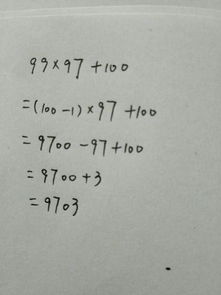 99×97+100
=(100-1)×97+100
=9700-97+100
=9700+3
=9703